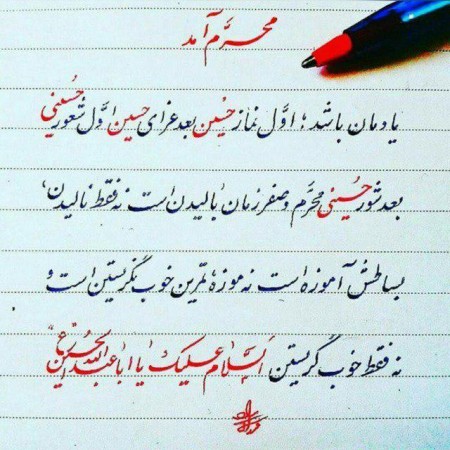 محرّم آمد
یادمان باشد؛ اوّل نماز حُسین بعد عزای حسین اوّل شعور حُسینی
بعد شور حُسینی محرّم و صفر زمان بالیدن است نه فقط نالیدن،
بساطش آموزه است نه موزه، تمرین خوب نگریستن است و
نه فقط خوب گریستن اَلسَّلامُ علیکَ یا اباعبدالله الحُسین (ع)